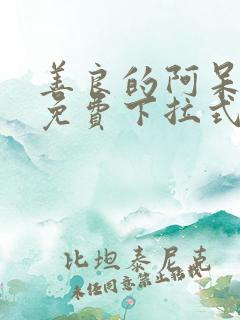 善良的阿呆
免費下拉式
比坦泰尼克
未任同意禁止轉載